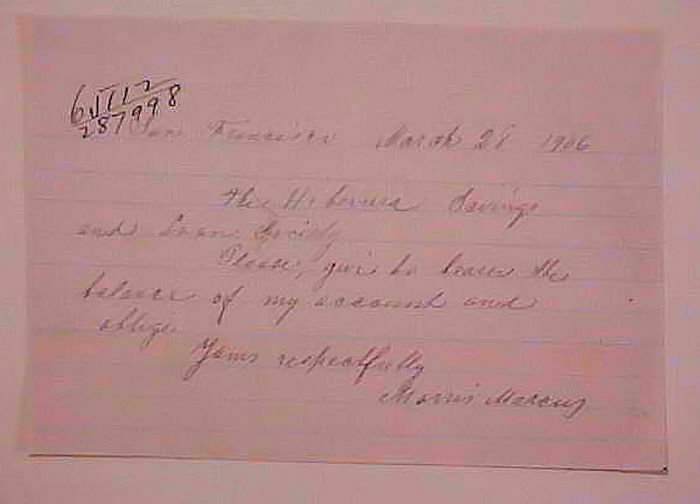 287998
San Francisco March 28 1906
The Hibernia Savings
and Loan Society
Please, give to bearer the
balance of my account and
oblige
Yours respectfully
Morris Marcus